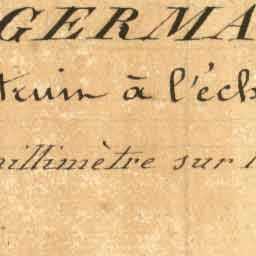 GERMA
truin à l'éch
millimètre sur l